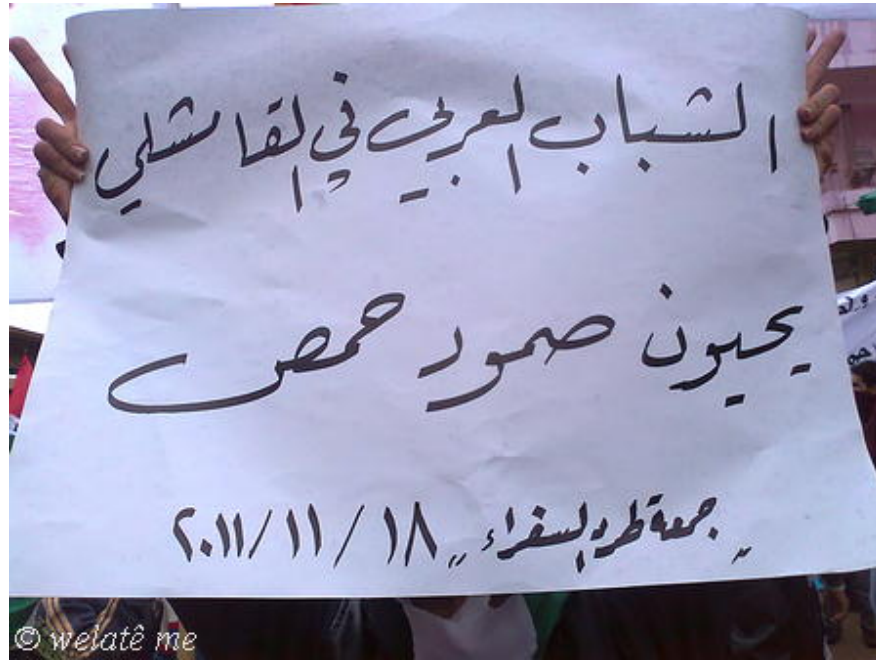 الشباب العربي في القامشلي
يحيون صمود حمص
"جمعة طرد السفراء" ١٨ / ١١ / ٢٠١١
© welatê me